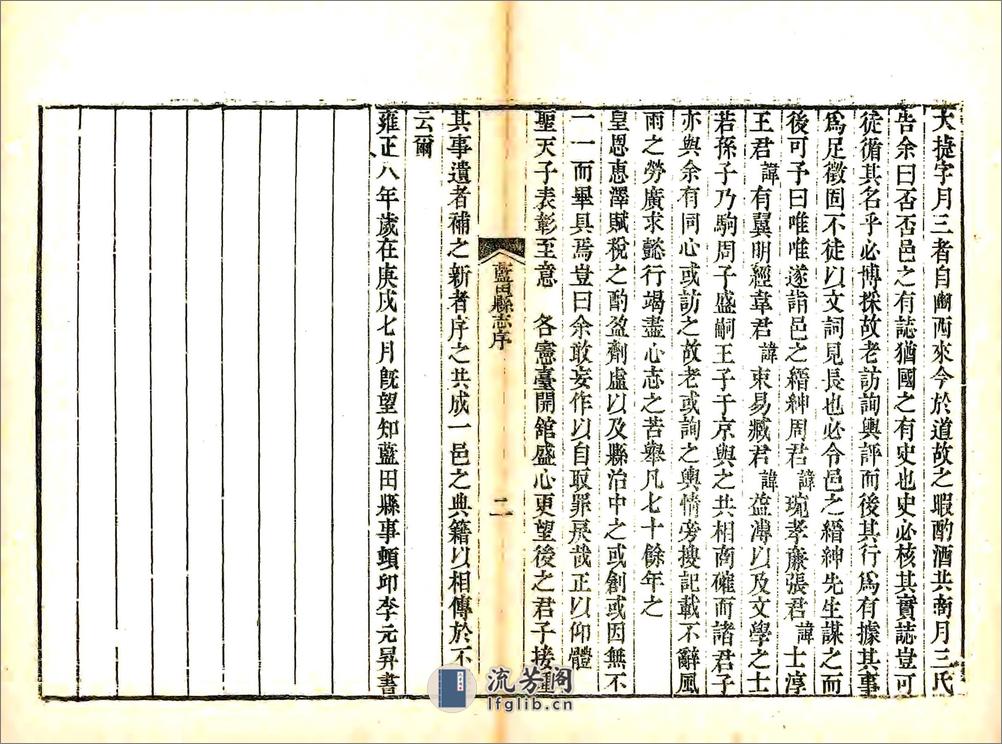 大捷字月三者自幽西來今於道故之暇酌酒共商月三氏
告余曰否否邑之有誌猶國之有史也史必核其實誌豈可
徒循其名乎必博採故老訪詢輿評而後其行為有據其事
為足徵固不徒以文詞見長也必令邑之縉紳先生謀之而
後可予曰唯唯遂詣邑之縉紳周君諱琬孝廉張君諱士淳
王君諱有翼明經韋君諱東易臧君諱蓋溥以及文學之士
若孫子乃駒周子盛嗣王子于京與之共相商確而諸君子
亦與余有同心或訪之故老或詢之輿情旁搜記載不辭風
雨之勞廣求懿行竭盡心志之苦舉凡七十餘年之
皇恩惠澤賦稅之酌盈劑虛以及縣治中之或創或因無不
一一而畢具焉豈曰余敢妄作以自取罪戾哉正以仰體
聖天子表彰至意 各憲臺開館盛心更望後之君子接踵
藍田縣志序
二
其事遺者補之新者序之共成一邑之典籍以相傳於不
云爾
雍正八年歲在庚戌七月既望知藍田縣事頓邱李元昇書
流芳閣
lfglib.cn